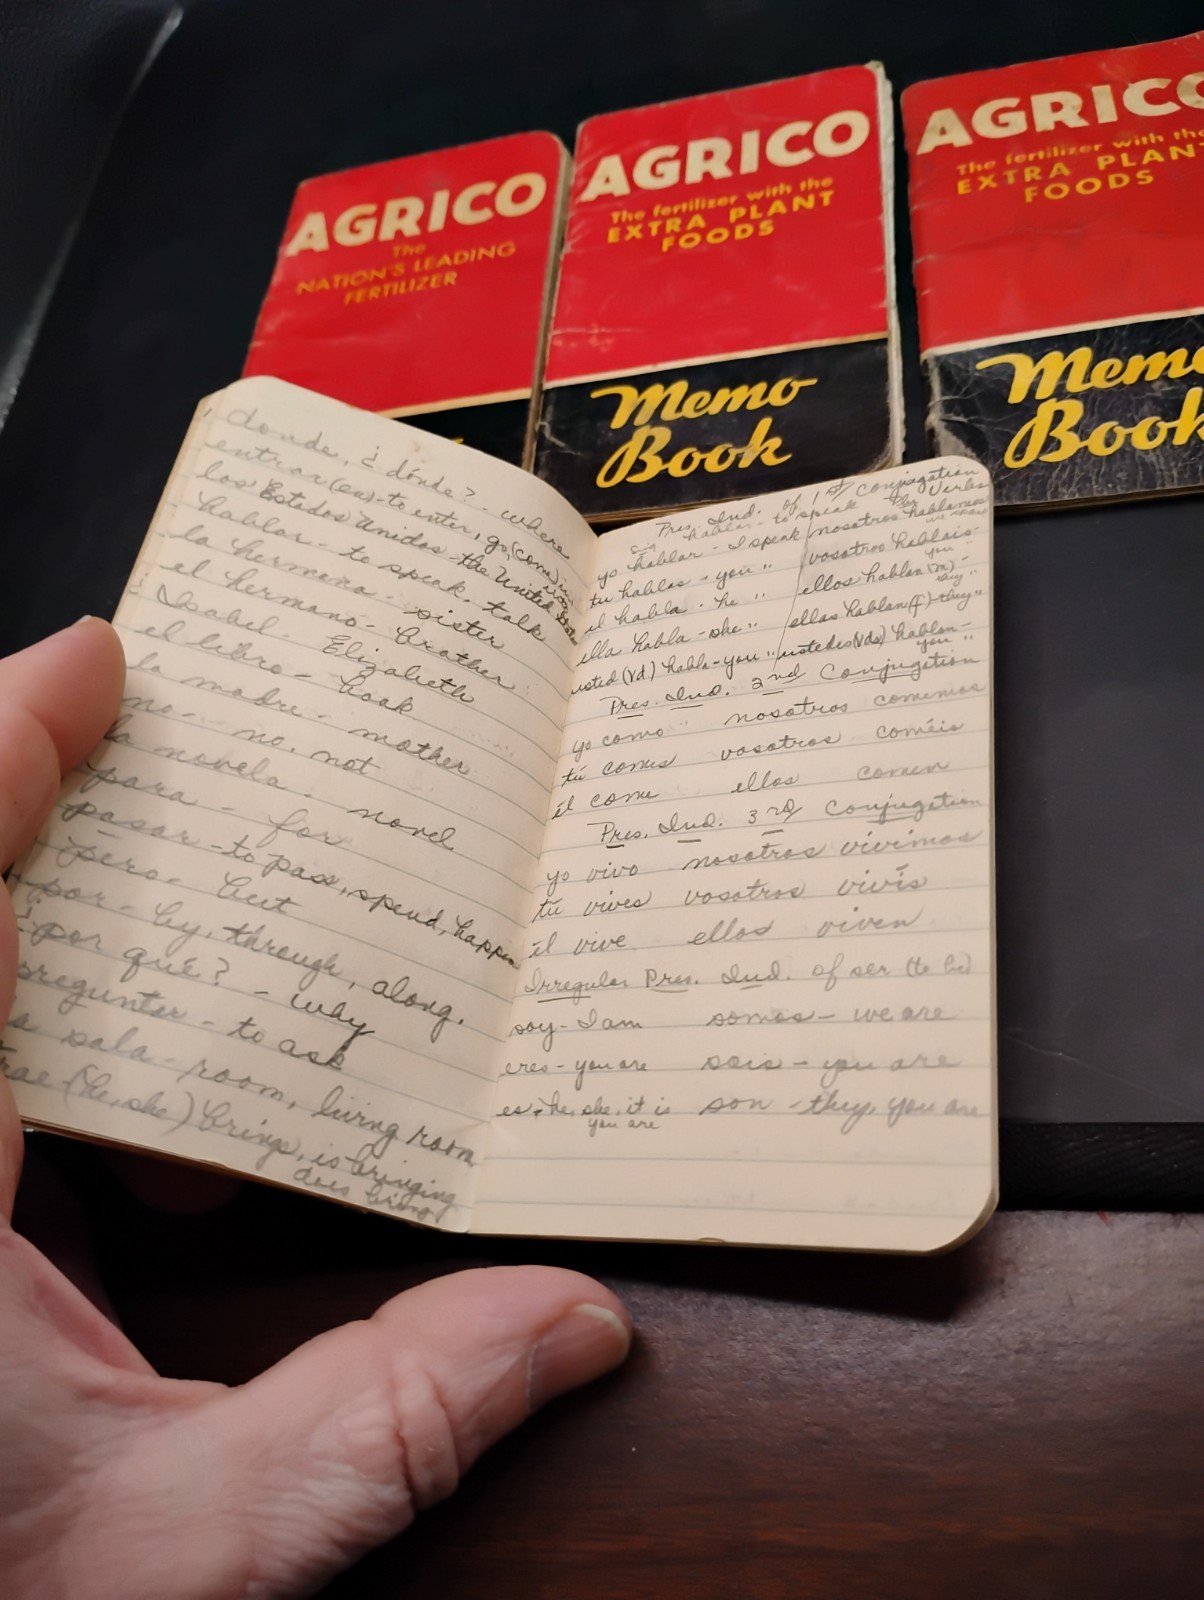 AGRICO
The
NATION'S LEADING
FERTILIZER
AGRICO
The fertilizer with the
EXTRA PLANT
FOODS
Memo
Book
AGRICO
The fertilizer with the
EXTRA PLANT
FOODS
Memo
Book
donde, ¿dónde? - where
entrar (en) - to enter, go, (come) in
los Estados Unidos - the United States
hablar - to speak, talk
la hermana - sister
el hermano - brother
Isabel - Elizabeth
el libro - book
la madre - mother
no - no, not
la novela - novel
para - for
pasar - to pass, spend, happen
pero - but
por - by, through, along.
¿por qué? - why
preguntar - to ask
la sala - room, living room
trae - (he, she) brings, is bringing
does bring
Pres. Ind. of 1st conjugation
hablar - to speak Verbs
yo hablar - I speak nosotros hablamos
we speak
tu hablas - you " vosotros habláis -
you "
el habla - he " ellos hablan (m) -
they "
ella habla - she " ellas hablan (f) - they "
usted (Vd.) habla - you " ustedes (Vds) hablan -
you "
Pres. Ind. 2nd Conjugation
yo como nosotros comemos
tú comes vosotros coméis
él come ellos comen
Pres. Ind. 3rd Conjugation
yo vivo nosotros vivimos
tú vives vosotros vivís
él vive ellos viven
Irregular Pres. Ind. of ser (to be)
soy - I am somos - we are
eres - you are sois - you are
es - he, she, it is son - they, you are
you are